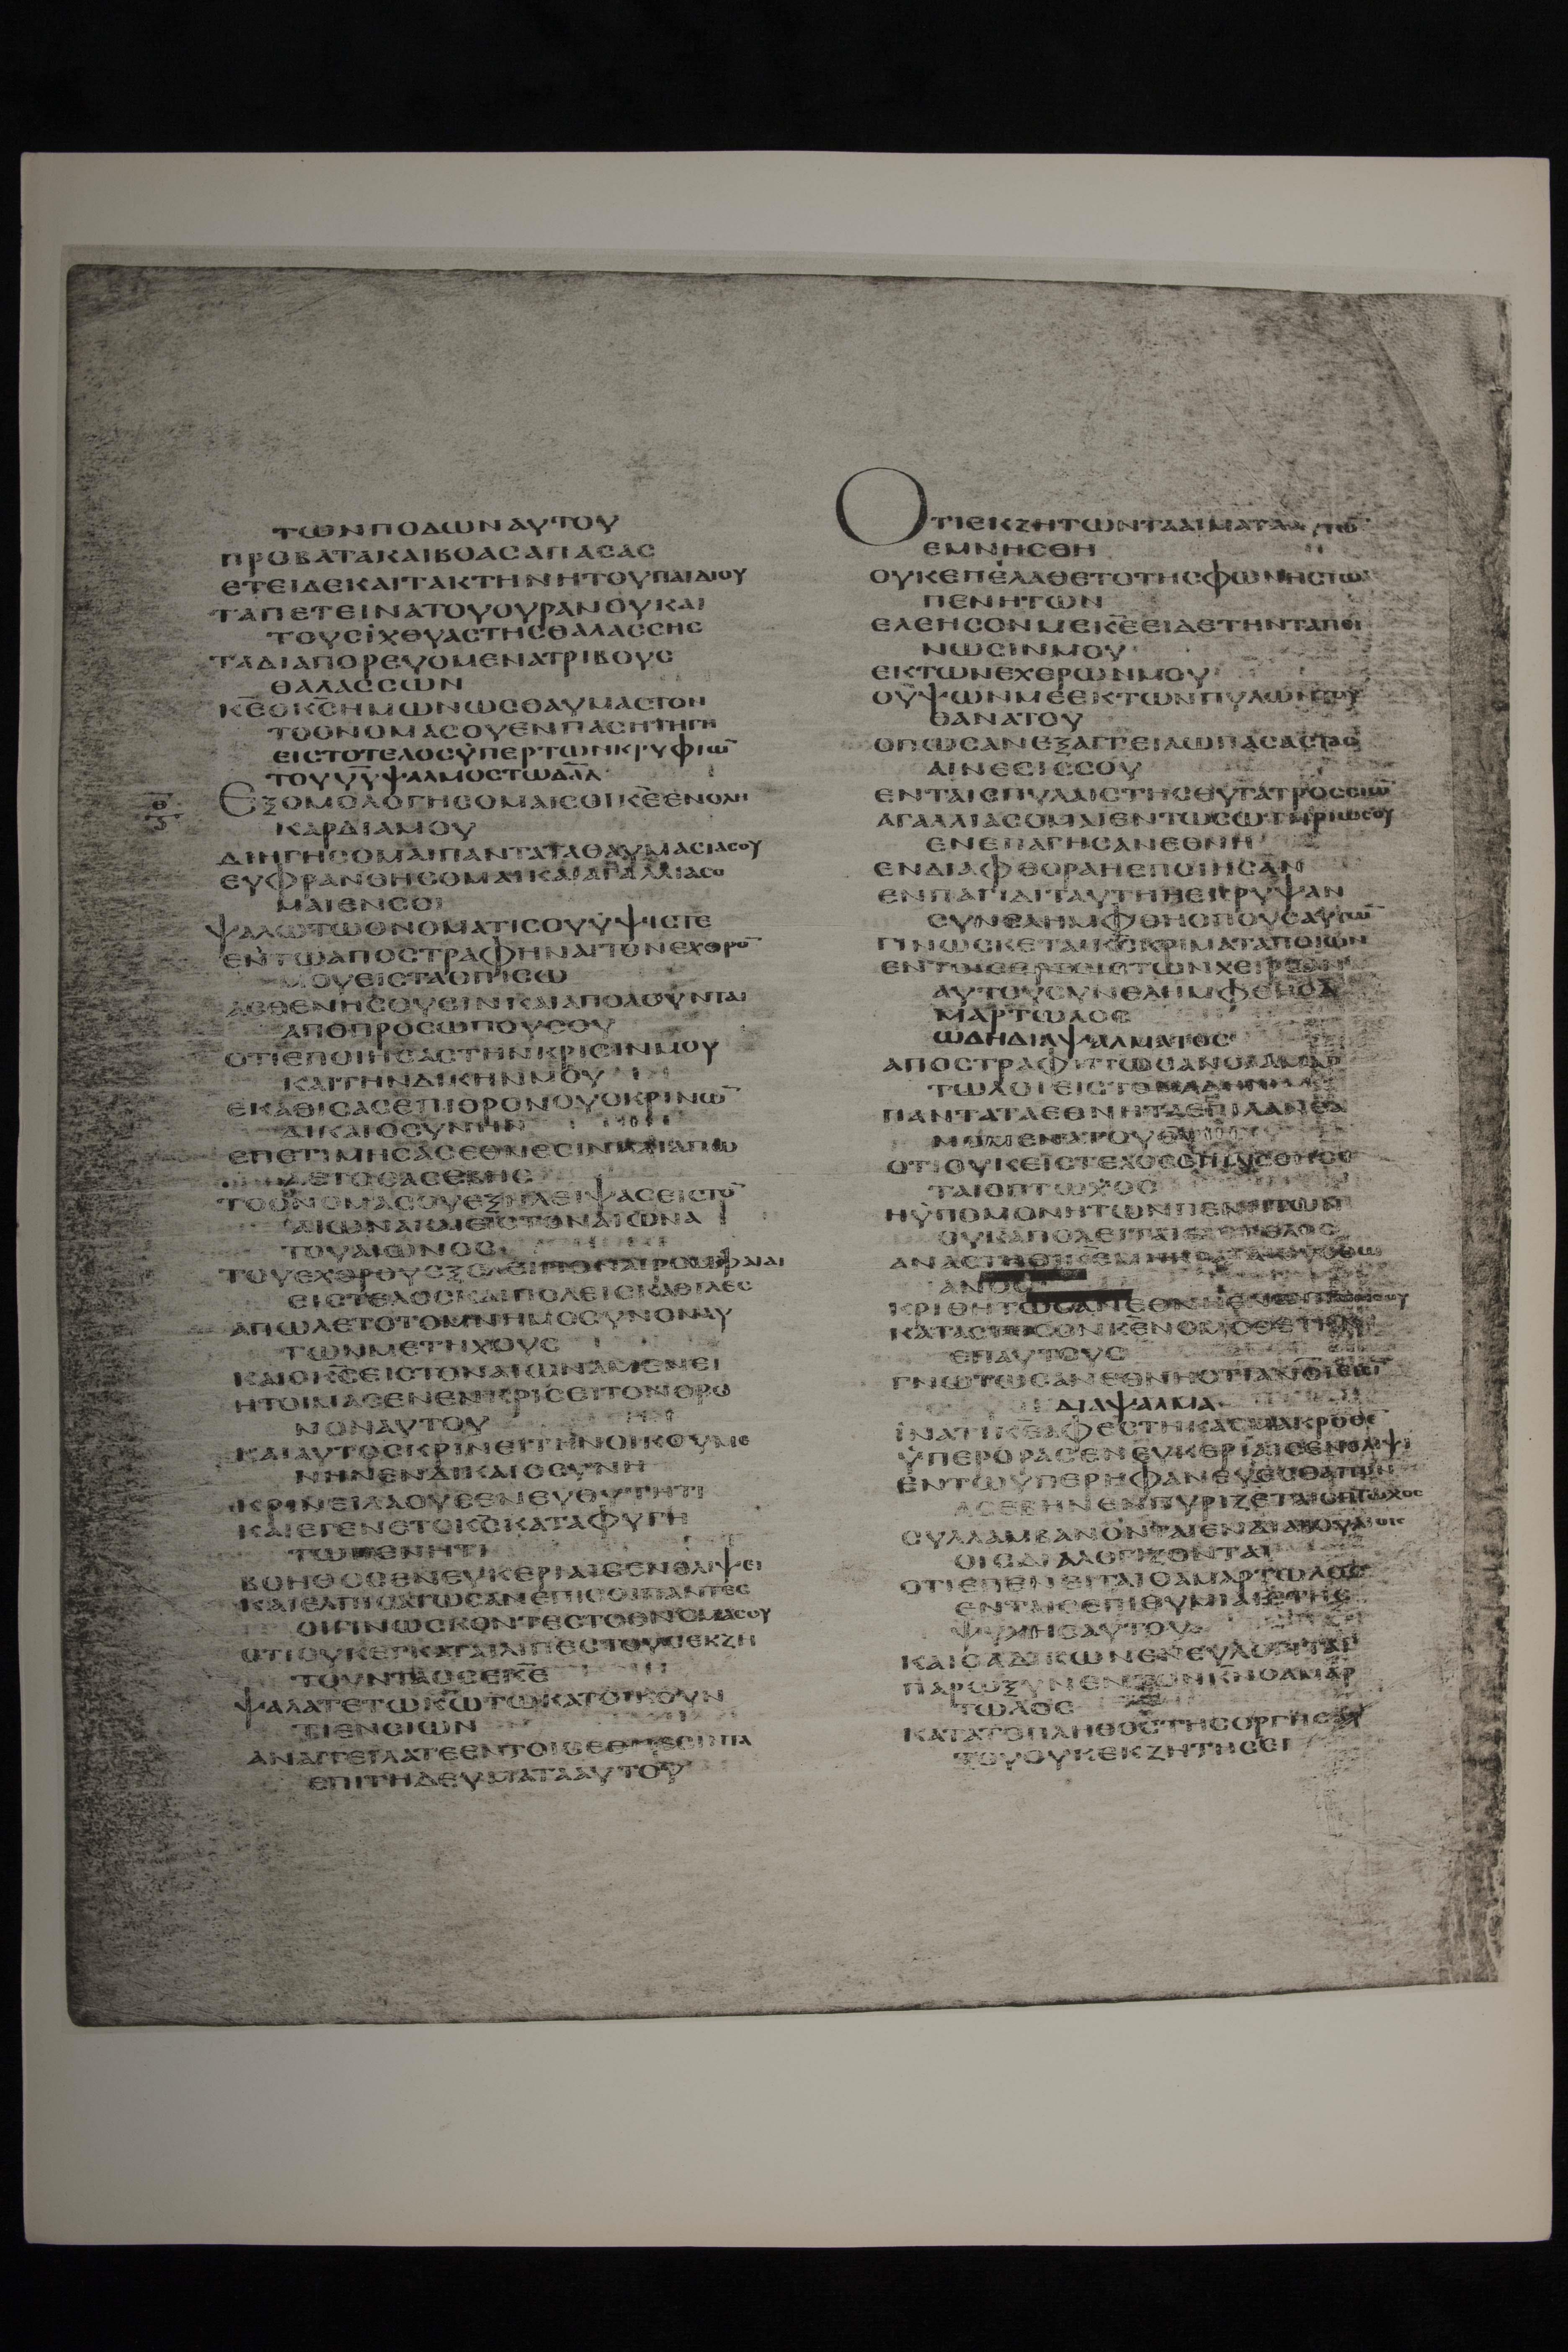 ΤΩΝΠΟΔΩΝΑΥΤΟΥ
ΠΡΟΒΑΤΑΚΑΙΒΟΑϹΑΠΑϹΑϹ
ΕΤΕΙΔΕΚΑΙΤΑΚΤΗΝΗΤΟΥΠΑΙΔΙΟΥ
ΤΑΠΕΤΕΙΝΑΤΟΥΟΥΡΑΝΟΥΚΑΙ
ΤΟΥϹΪΧΘΥΑϹΤΗϹΘΑΛΑϹϹΗϹ
ΤΑΔΙΑΠΟΡΕΥΟΜΕΝΑΤΡΙΒΟΥϹ
ΘΑΛΑϹϹΩΝ
Κ̅Ε̅ΟΚ̅Ϲ̅ΗΜΩΝΩϹΘΑΥΜΑϹΤΟΝ
ΤΟΟΝΟΜΑϹΟΥΕΝΠΑϹΗΤΗΓΗ
ΕΙϹΤΟΤΕΛΟϹΫΠΕΡΤΩΝΚΡΥΦΙΩ̅
ΤΟΥΥ̅Υ̅ΨΑΛΜΟϹΤΩΔΑ̅Δ̅
Θ̅
ΕΞΟΜΟΛΟΓΗϹΟΜΑΙϹΟΙΚ̅Ε̅ΕΝΟΛΗ
ΚΑΡΔΙΑΜΟΥ
ΔΙΗΓΗϹΟΜΑΙΠΑΝΤΑΤΑΘΑΥΜΑϹΙΑϹΟΥ
ΕΥΦΡΑΝΘΗϹΟΜΑΙΚΑΙΑΓΑΛΛΙΑϹΟ
ΜΑΙΕΝϹΟΙ
ΨΑΛΩΤΩΟΝΟΜΑΤΙϹΟΥΫΨΙϹΤΕ
ΕΝΤΩΑΠΟϹΤΡΑΦΗΝΑΙΤΟΝΕΧΘΡΟ̅
ΜΟΥΕΙϹΤΑΟΠΙϹΩ
ΑϹΘΕΝΗϹΟΥϹΙΝΚΑΙΑΠΟΛΟΥΝΤΑΙ
ΑΠΟΠΡΟϹΩΠΟΥϹΟΥ
ΟΤΙΕΠΟΙΗϹΑϹΤΗΝΚΡΙϹΙΝΜΟΥ
ΚΑΙΤΗΝΔΙΚΗΝΜΟΥ
ΕΚΑΘΙϹΑϹΕΠΙΘΡΟΝΟΥΟΚΡΙΝΩ̅
ΔΙΚΑΙΟϹΥΝΗΝ
ΕΠΕΤΙΜΗϹΑϹΕΘΝΕϹΙΝΚΑΙΑΠΩ
ΛΕΤΟΑϹΕΒΗϹ
ΤΟΟΝΟΜΑϹΟΥΕΞΗΛΕΙΨΑϹΕΙϹΤΟ̅
ΑΙΩΝΑΚΑΙΕΙϹΤΟΝΑΙΩΝΑ
ΤΟΥΑΙΩΝΟϹ
ΕΙϹΤΕΛΟϹΚΑΙΠΟΛΕΙϹΚΑΘΙΛΕϹ
ΑΠΩΛΕΤΟΤΟΜΝΗΜΟϹΥΝΟΝΑΥ
ΤΩΝΜΕΤΗΧΟΥϹ
ΚΑΙΟΚ̅Ϲ̅ΕΙϹΤΟΝΑΙΩΝΑΜΕΝΕΙ
ΗΤΟΙΜΑϹΕΝΕΝΚΡΙϹΕΙΤΟΝΘΡΟ
ΝΟΝΑΥΤΟΥ
ΚΑΙΑΥΤΟϹΚΡΙΝΕΙΤΗΝΟΙΚΟΥΜΕ
ΝΗΝΕΝΔΙΚΑΙΟϹΥΝΗ
ΚΡΙΝΕΙΛΑΟΥϹΕΝΕΥΘΥΤΗΤΙ
ΚΑΙΕΓΕΝΕΤΟΚ̅Ϲ̅ΚΑΤΑΦΥΓΗ
ΤΩΠΕΝΗΤΙ
ΒΟΗΘΟϹΕΝΕΥΚΕΡΙΑΙϹΕΝΘΛΙΨΕΙ
ΚΑΙΕΛΠΙϹΑΤΩϹΑΝΕΠΙϹΟΙΠΑΝΤΕϹ
ΟΙΓΙΝΩϹΚΟΝΤΕϹΤΟΟΝΟΜΑϹΟΥ
ΟΤΙΟΥΚΕΓΚΑΤΑΙΛΙΠΕϹΤΟΥϹΕΚΖΗ
ΤΟΥΝΤΑϹϹΕΚ̅Ε̅
ΨΑΛΑΤΕΤΩΚ̅Ω̅ΤΩΚΑΤΟΙΚΟΥΝ
ΤΙΕΝϹΙΩΝ
ΑΝΑΓΓΕΙΛΑΤΕΕΝΤΟΙϹΕΘΝΕϹΙΝΤΑ
ΕΠΙΤΗΔΕΥΜΑΤΑΑΥΤΟΥ
ΟΤΙΕΚΖΗΤΩΝΤΑΑΙΜΑΤΑΑΥΤΩ̅
ΕΜΝΗϹΘΗ
ΟΥΚΕΠΕΛΑΘΕΤΟΤΗϹΦΩΝΗϹΤΩ̅
ΠΕΝΗΤΩΝ
ΕΛΕΗϹΟΝΜΕΚ̅Ε̅ΕΙΔΕΤΗΝΤΑΠΙ
ΝΩϹΙΝΜΟΥ
ΕΚΤΩΝΕΧΘΡΩΝΜΟΥ
ΟΥΨΩΝΜΕΕΚΤΩΝΠΥΛΩΝΤΟΥ
ΘΑΝΑΤΟΥ
ΟΠΩϹΑΝΕΞΑΓΓΕΙΛΩΠΑϹΑϹΤΑϹ
ΑΙΝΕϹΙϹϹΟΥ
ΕΝΤΑΙϹΠΥΛΑΙϹΤΗϹΘΥΓΑΤΡΟϹϹΙΩ̅
ΑΓΑΛΛΙΑϹΟΜΑΙΕΝΤΩϹΩΤΗΡΙΩϹΟΥ
ΕΝΕΠΑΓΗϹΑΝΕΘΝΗ
ΕΝΔΙΑΦΘΟΡΑΗΕΠΟΙΗϹΑΝ
ΕΝΠΑΓΙΔΙΤΑΥΤΗΗΕΚΡΥΨΑΝ
ϹΥΝΕΛΗΜΦΘΗΟΠΟΥϹΑΥΤΩ̅
ΓΙΝΩϹΚΕΤΑΙΚ̅Ϲ̅ΚΡΙΜΑΤΑΠΟΙΩΝ
ΕΝΤΟΙϹΕΡΓΟΙϹΤΩΝΧΕΙΡΩΝ
ΑΥΤΟΥϹΥΝΕΛΗΜΦΘΗΟΑ
ΜΑΡΤΩΛΟϹ
ΩΔΗΔΙΑΨΑΛΜΑΤΟϹ
ΑΠΟϹΤΡΑΦΗΤΩϹΑΝΟΙΑΜΑΡ
ΤΩΛΟΙΕΙϹΤΟΝΑΔΗΝ
ΠΑΝΤΑΤΑΕΘΝΗΤΑΕΠΙΛΑΝΘΑ
ΟΤΙΟΥΚΕΙϹΤΕΛΟϹΕΠΙΛΗϹΘΗϹΕ
ΤΑΙΟΠΤΩΧΟϹ
ΗΫΠΟΜΟΝΗΤΩΝΠΕΝΗΤΩΝ
ΑΝΟϹ
ΚΑΤΑϹΤΗϹΟΝΚ̅Ε̅ΝΟΜΟΘΕΤΗΝ
ΕΠΑΥΤΟΥϹ
ΓΝΩΤΩϹΑΝΕΘΝΗΟΤΙΑΝ̅Ο̅Ι̅ΕΙϹΙ̅
ΔΙΑΨΑΛΜΑ
ΪΝΑΤΙΚ̅Ε̅ΑΦΕϹΤΗΚΑϹΜΑΚΡΟΘΕ̅
ΫΠΕΡΟΡΑϹΕΝΕΥΚΕΡΙΑΙϹΕΝΘΛΙΨΙ
ΕΝΤΩΫΠΕΡΗΦΑΝΕΥΕϹΘΑΙΤΟΝ
ΑϹΕΒΗΝΕΜΠΥΡΙΖΕΤΑΙΟΠΤΩΧΟϹ
ϹΥΛΛΑΜΒΑΝΟΝΤΑΙΕΝΔΙΑΒΟΥΛΙΟΙϹ
ΟΙϹΔΙΑΛΟΓΙΖΟΝΤΑΙ
ΟΤΙΕΠΕΝΕΙΤΑΙΟΑΜΑΡΤΩΛΟϹ
ΕΝΤΑΙϹΕΠΙΘΥΜΙΑΙϹΤΗϹ
ΨΥΧΗϹΑΥΤΟΥ
ΚΑΙΟΑΔΙΚΩΝΕΝΕΥΛΟΓΙΤΑΙ
ΠΑΡΩΞΥΝΕΝΤΟΝΚ̅Ν̅ΟΑΜΑΡ
ΤΩΛΟϹ
ΚΑΤΑΤΟΠΛΗΘΟϹΤΗϹΟΡΓΗϹΑΥ
ΤΟΥΟΥΚΕΚΖΗΤΗϹΕΙ